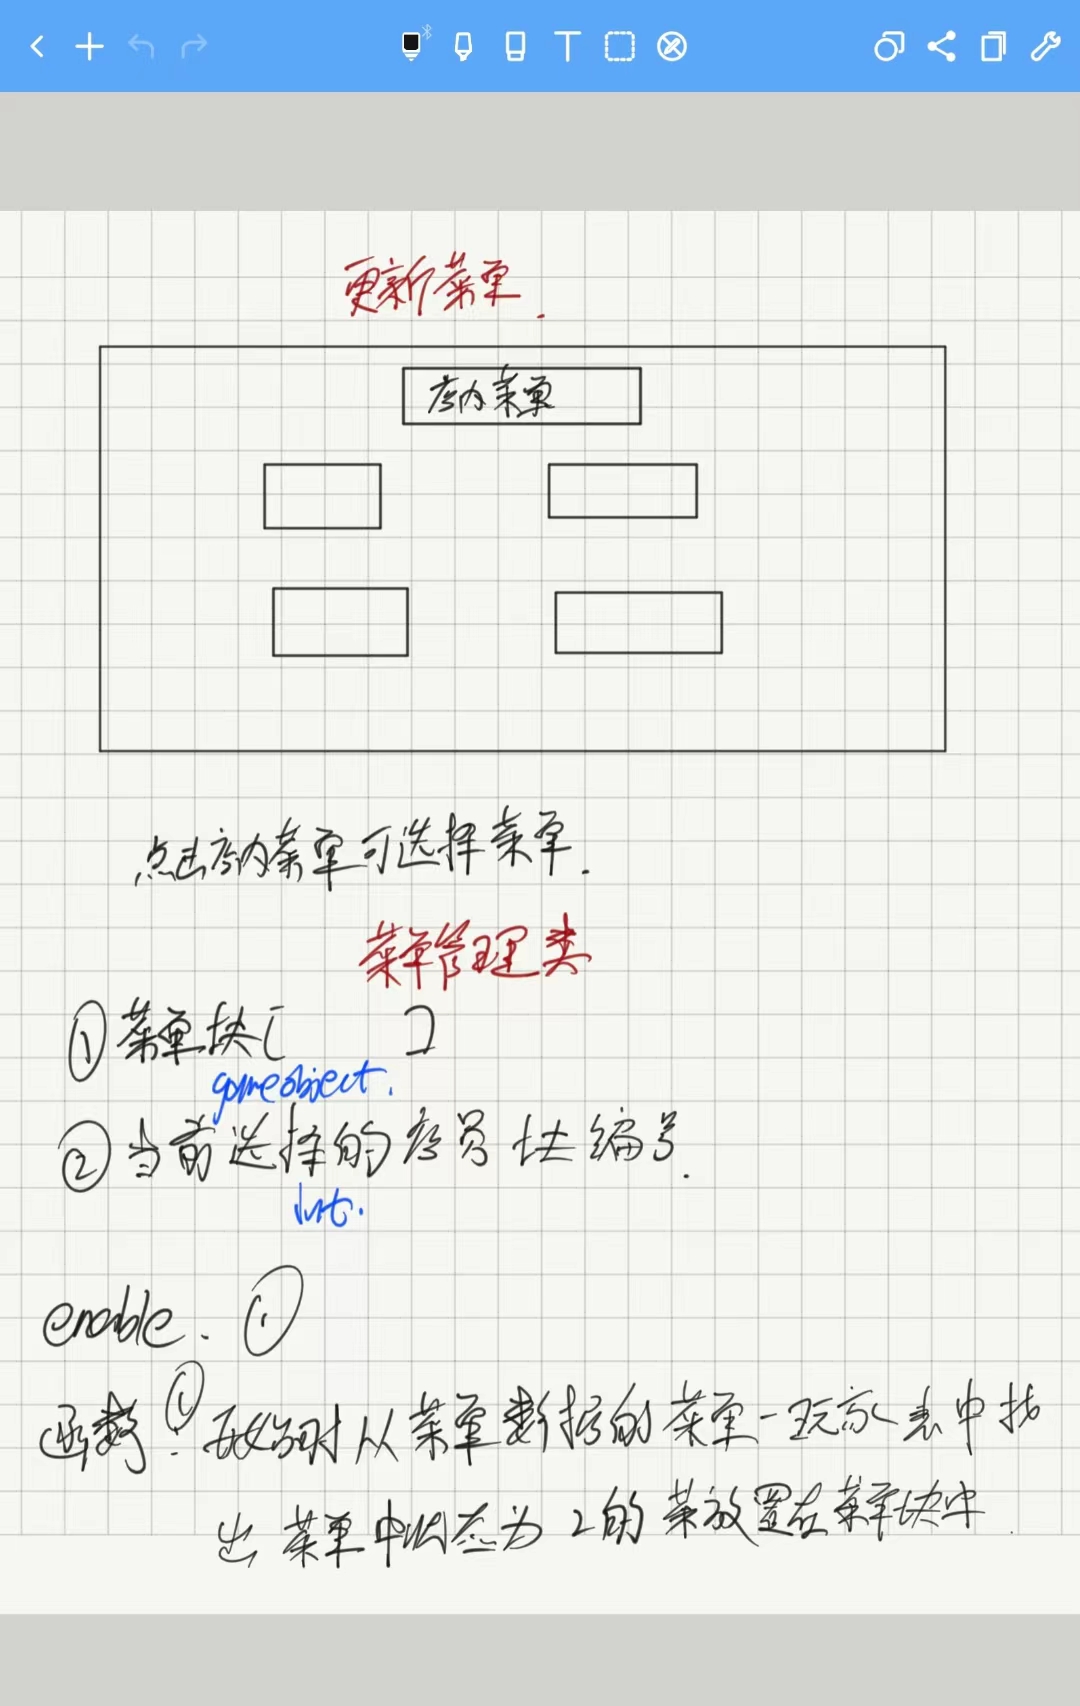 更新菜单.
店内菜单
点击店内菜单可选择菜单.
菜单管理类
①菜单块[ ]
gameobject.
②当前选择的店员块编号.
int.
enable. ①
函数①: 开始时从菜单数据的菜单-玩家表中找
出菜单中状态为2的菜放置在菜单块中.